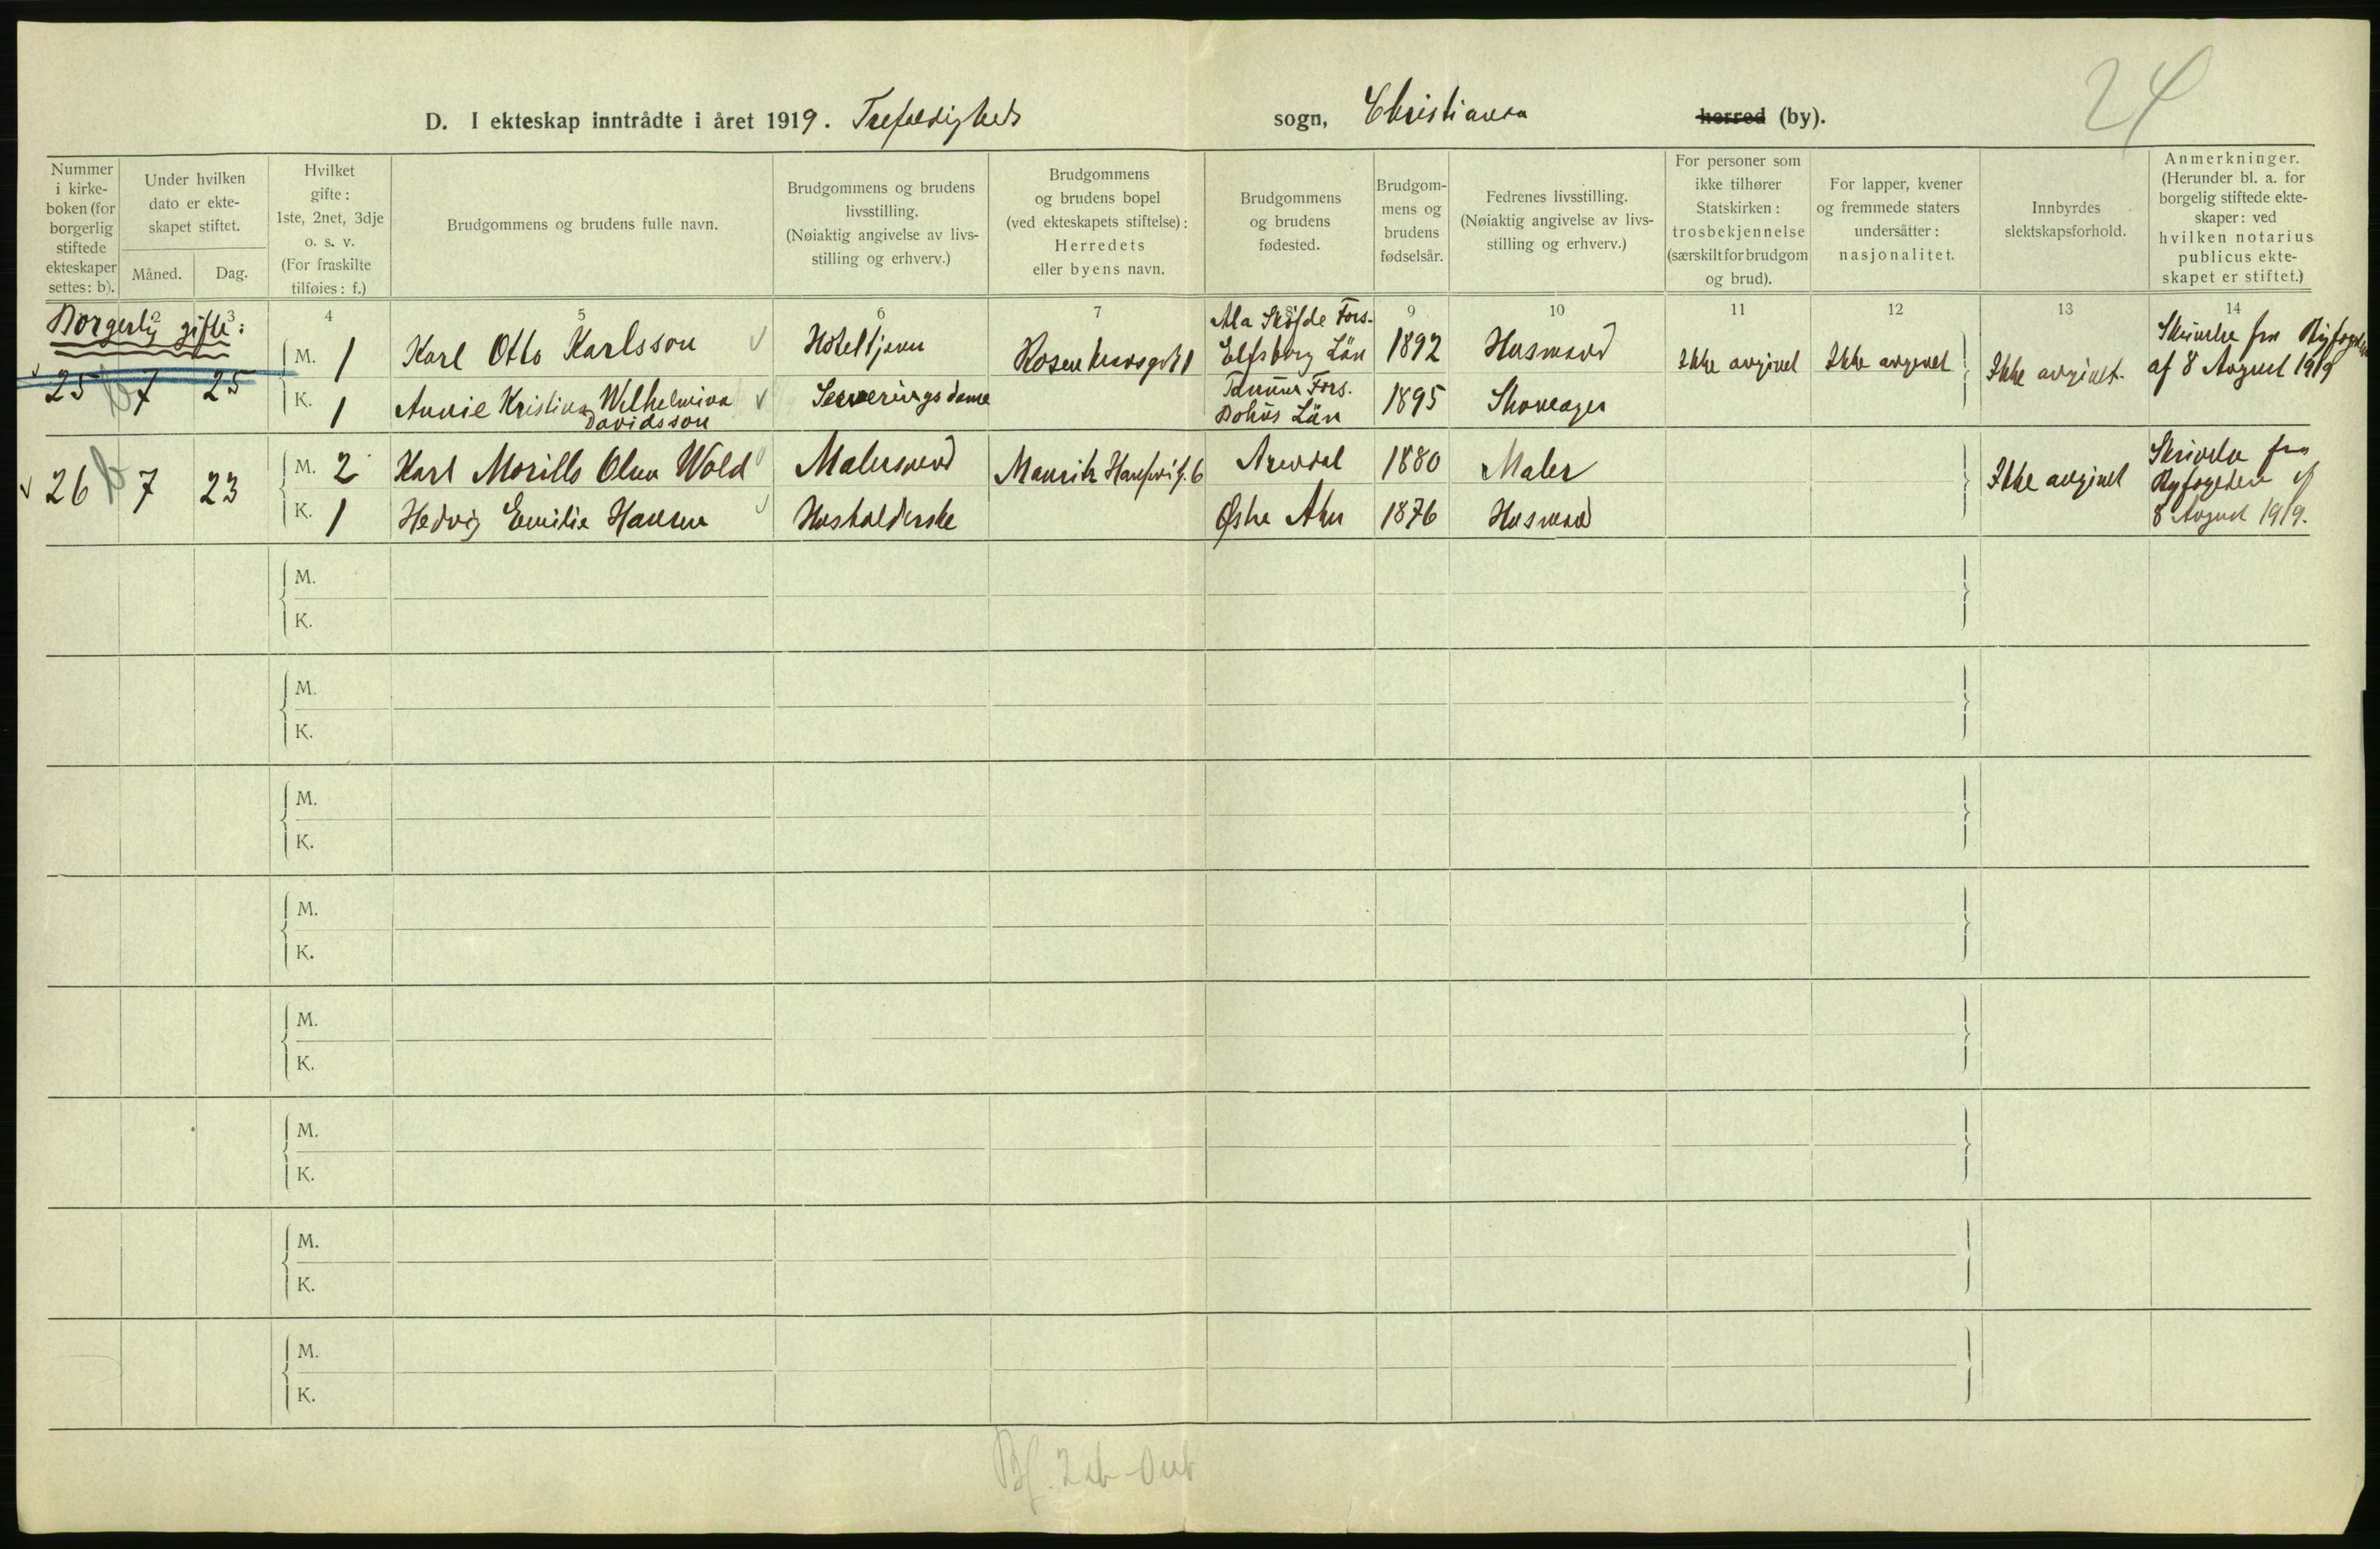 24
D. I ekteskap inntrådte i året 1919. Trefoldigheds sogn, Christiania herred (by).
Nummer i kirke-boken (for borgerlig stiftede ekteskaper settes: b).
Under hvilken dato er ekte-skapet stiftet.
Måned.
Dag.
Hvilket gifte: 1ste, 2net, 3dje o. s. v. (For fraskilte tilføies: f.)
Brudgommens og brudens fulle navn.
Brudgommens og brudens livsstilling. (Nøiaktig angivelse av livs-stilling og erhverv.)
Brudgommens og brudens bopel (ved ekteskapets stiftelse): Herredets eller byens navn.
Brudgommens og brudens fødested.
Brudgom-mens og brudens fødselsår.
Fedrenes livsstilling. (Nøiaktig angivelse av livs-stilling og erhverv.)
For personer som ikke tilhører Statskirken: trosbekjennelse (særskilt for brudgom og brud).
For lapper, kvener og fremmede staters undersåtter: nasjonalitet.
Innbyrdes slektskapsforhold.
Anmerkninger. (Herunder bl. a. for borgelig stiftede ekte-skaper: ved hvilken notarius publicus ekte-skapet er stiftet.)
2 3 4 5 6 7 8 9 10 11 12 13 14
Borgerlig gifte:
25 b 7 25
M. 1 Karl Otto Karlsson Hoteltjener Rosenkransgd 1 Ala Skölde Förs. Elfsborg Län 1892 Husmand Ikke avgivet Ikke avgivet Ikke avgivet. Skrivelse fra Byfogden af 8 August 1919
K. 1 Annie Kristina Wilhelmina Davidsson Serveringsdame Tanum Förs. Bohus Län 1895 Skomager
26 b 7 23
M. 2 Karl Morills Olsen Wold Malersvend Mauritz Hansensg. 6 Arendal 1880 Maler Ikke avgivet Skrivelse fra Byfogeden af 8 August 1919.
K. 1 Hedvig Emilie Hansen Husholderske Østre Aker 1876 Husmand
M.
K.
M.
K.
M.
K.
M.
K.
M.
K.
M.
K.
M.
K.
M.
K.